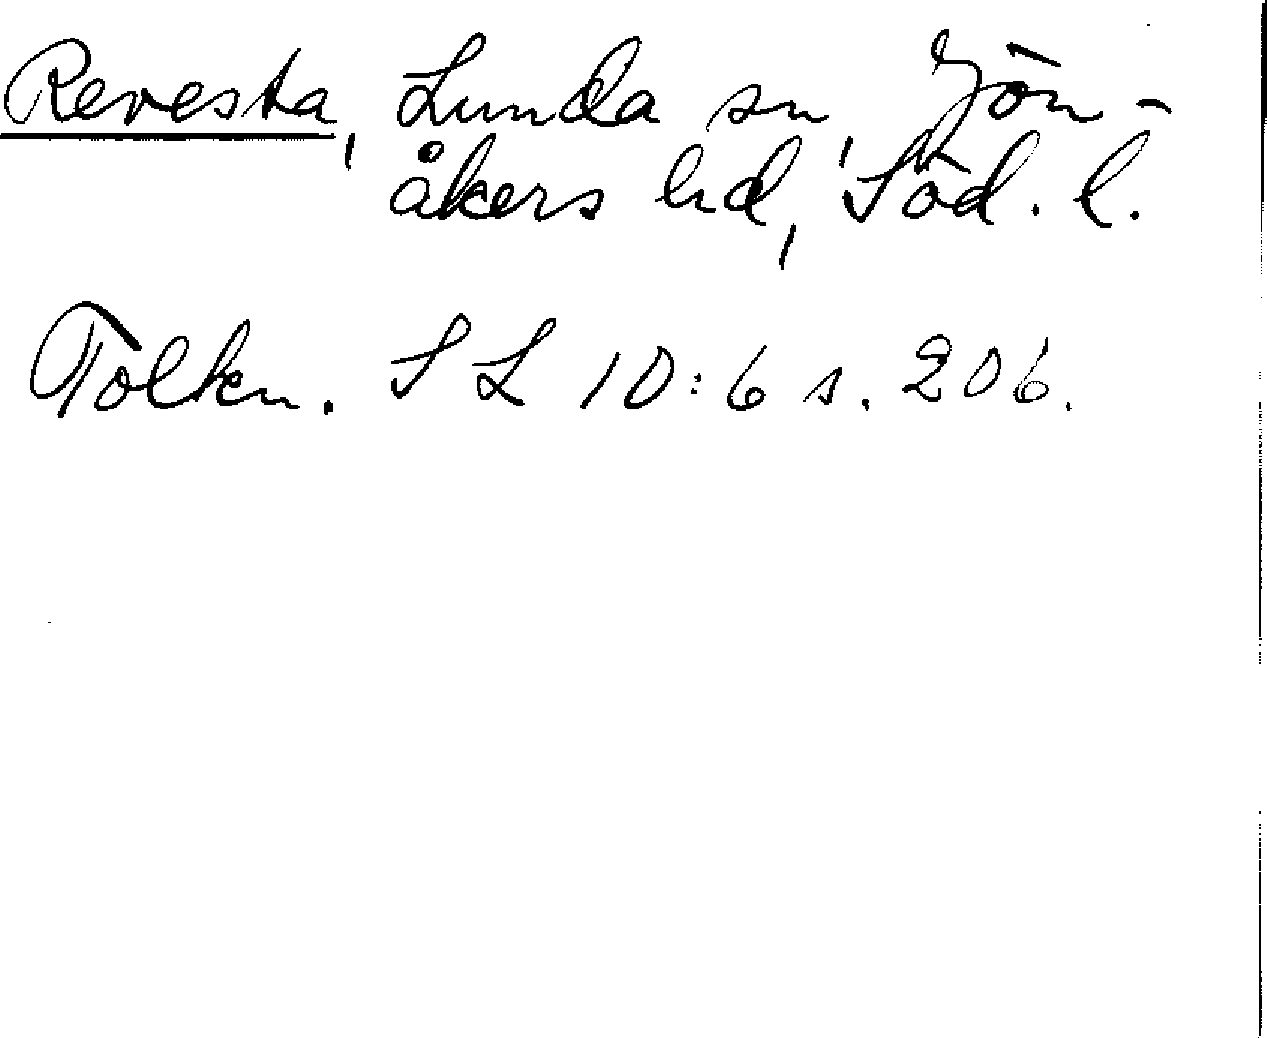 Revesta, Lunda sn, Jön-
åkers hd, Söd. l.
Tolkn. SL 10:6 s. 206.